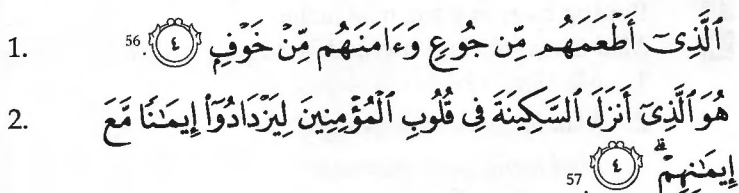 1. ٱلَّذِىٓ أَطْعَمَهُم مِّن جُوعٍ وَءَامَنَهُم مِّنْ خَوْفٍۭ ٤ .56
2. هُوَ ٱلَّذِىٓ أَنزَلَ ٱلسَّكِينَةَ فِى قُلُوبِ ٱلْمُؤْمِنِينَ لِيَزْدَادُوٓا۟ إِيمَـٰنًا مَّعَ
إِيمَـٰنِهِمْ ۗ ٤ 57